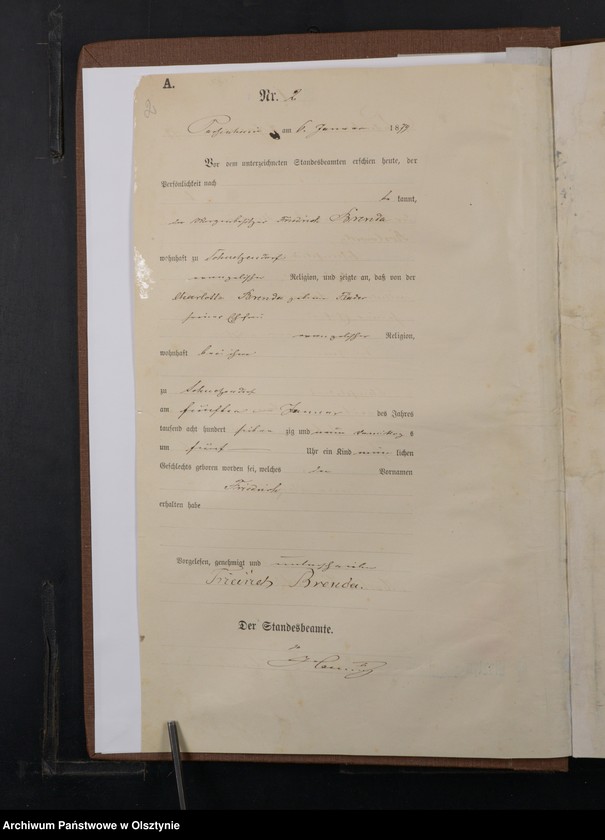 A.
Nr. 2
am 6. Januar 1879
Vor dem unterzeichneten Standesbeamten erschien heute, der
Persönlichkeit nach
be kannt,
der Friedrich Brenda
wohnhaft zu
evangelischer Religion, und zeigte an, daß von der
Charlotte Brenda geborene
seiner Ehefrau
evangelischer Religion,
wohnhaft bei ihm
zu
am fünften Januar des Jahres
tausend acht hundert sieben zig und neun
um fünf Uhr ein Kind männ lichen
Geschlechts geboren worden sei, welches den Vornamen
Friedrich
erhalten habe
Vorgelesen, genehmigt und unterschrieben
Friedrich Brenda.
Der Standesbeamte.
Archiwum Państwowe w Olsztynie